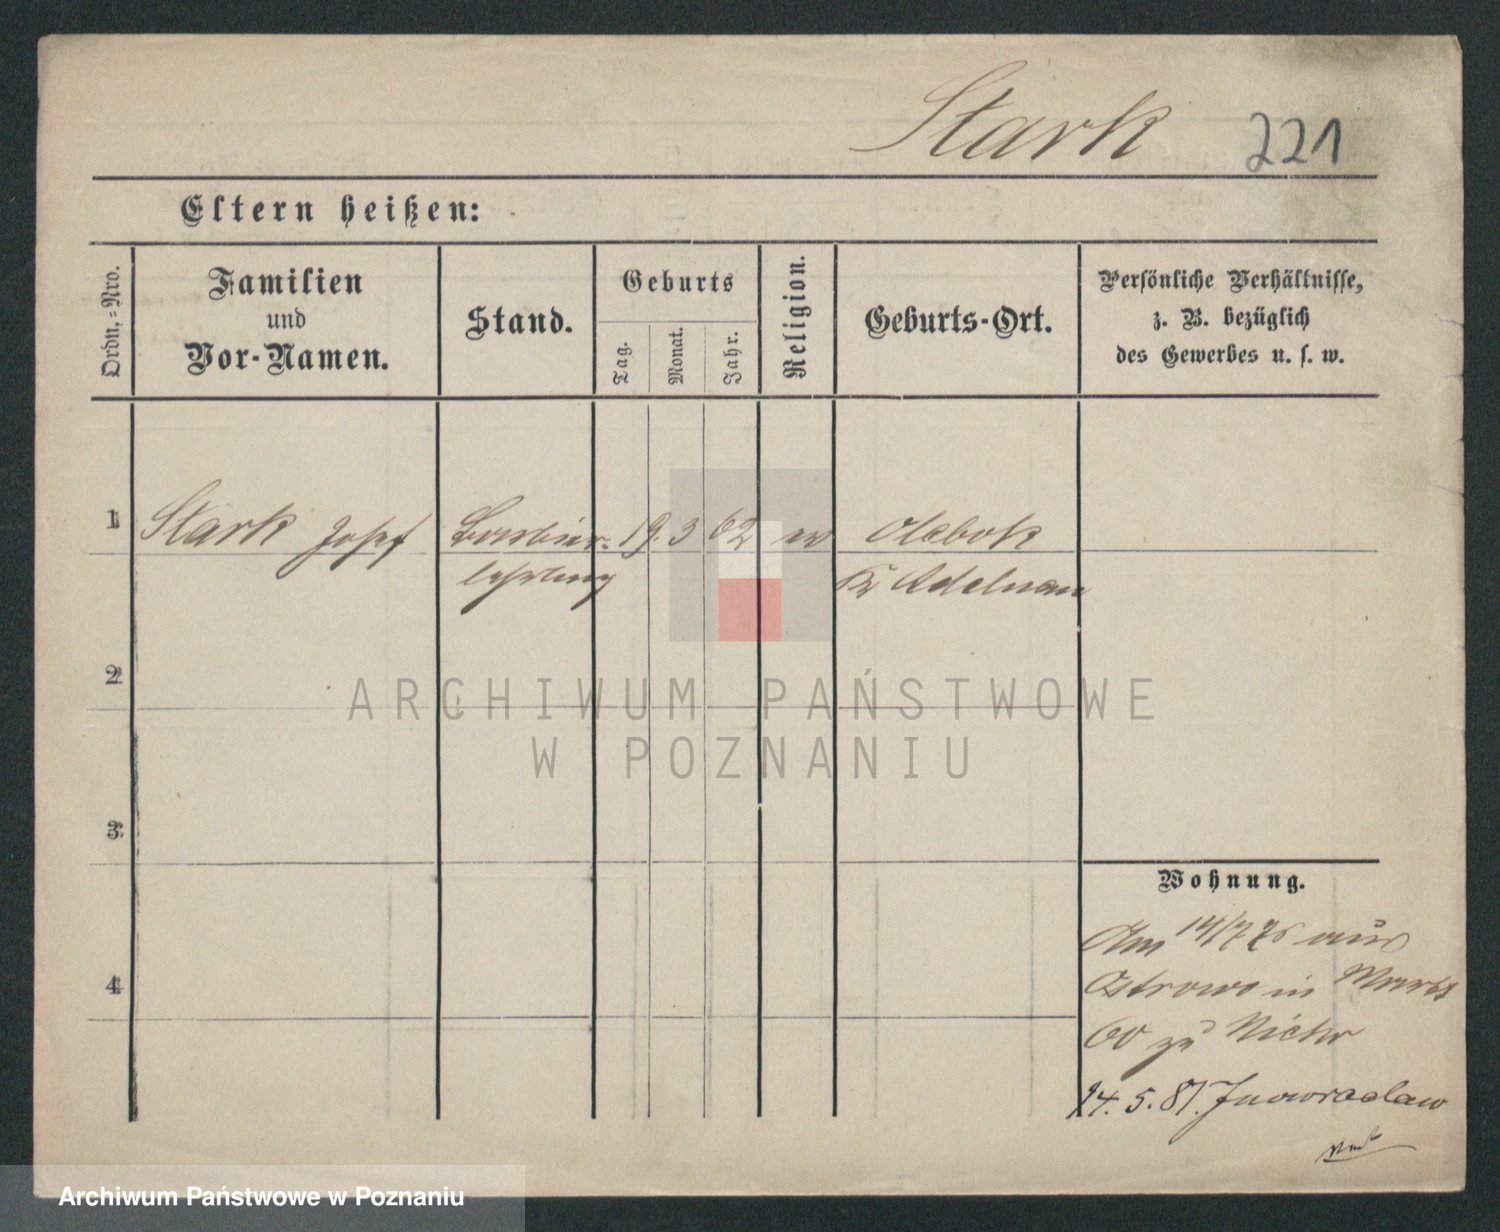 Stark 221
Eltern heißen:
Ordn.=Nro.
Familien
und
Vor-Namen.
Stand.
Geburts
Tag.
Monat.
Jahr.
Religion.
Geburts-Ort.
Persönliche Verhältnisse,
z. B. bezüglich
des Gewerbes u. s. w.
1 Stark Josef Barbier- 19. 3 62 ev
lehrling
Kr Adelnau
2
3
4
Wohnung.
Am 14/7 76 aus
Ostrowo in
60 zu
14. 5. 81. Inowraclaw
ARCHIWUM PAŃSTWOWE
W POZNANIU
Archiwum Państwowe w Poznaniu